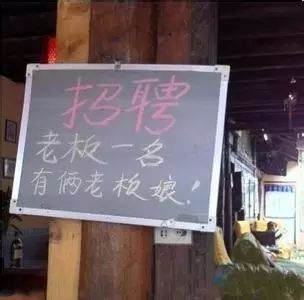 招聘
老板一名
有俩老板娘!